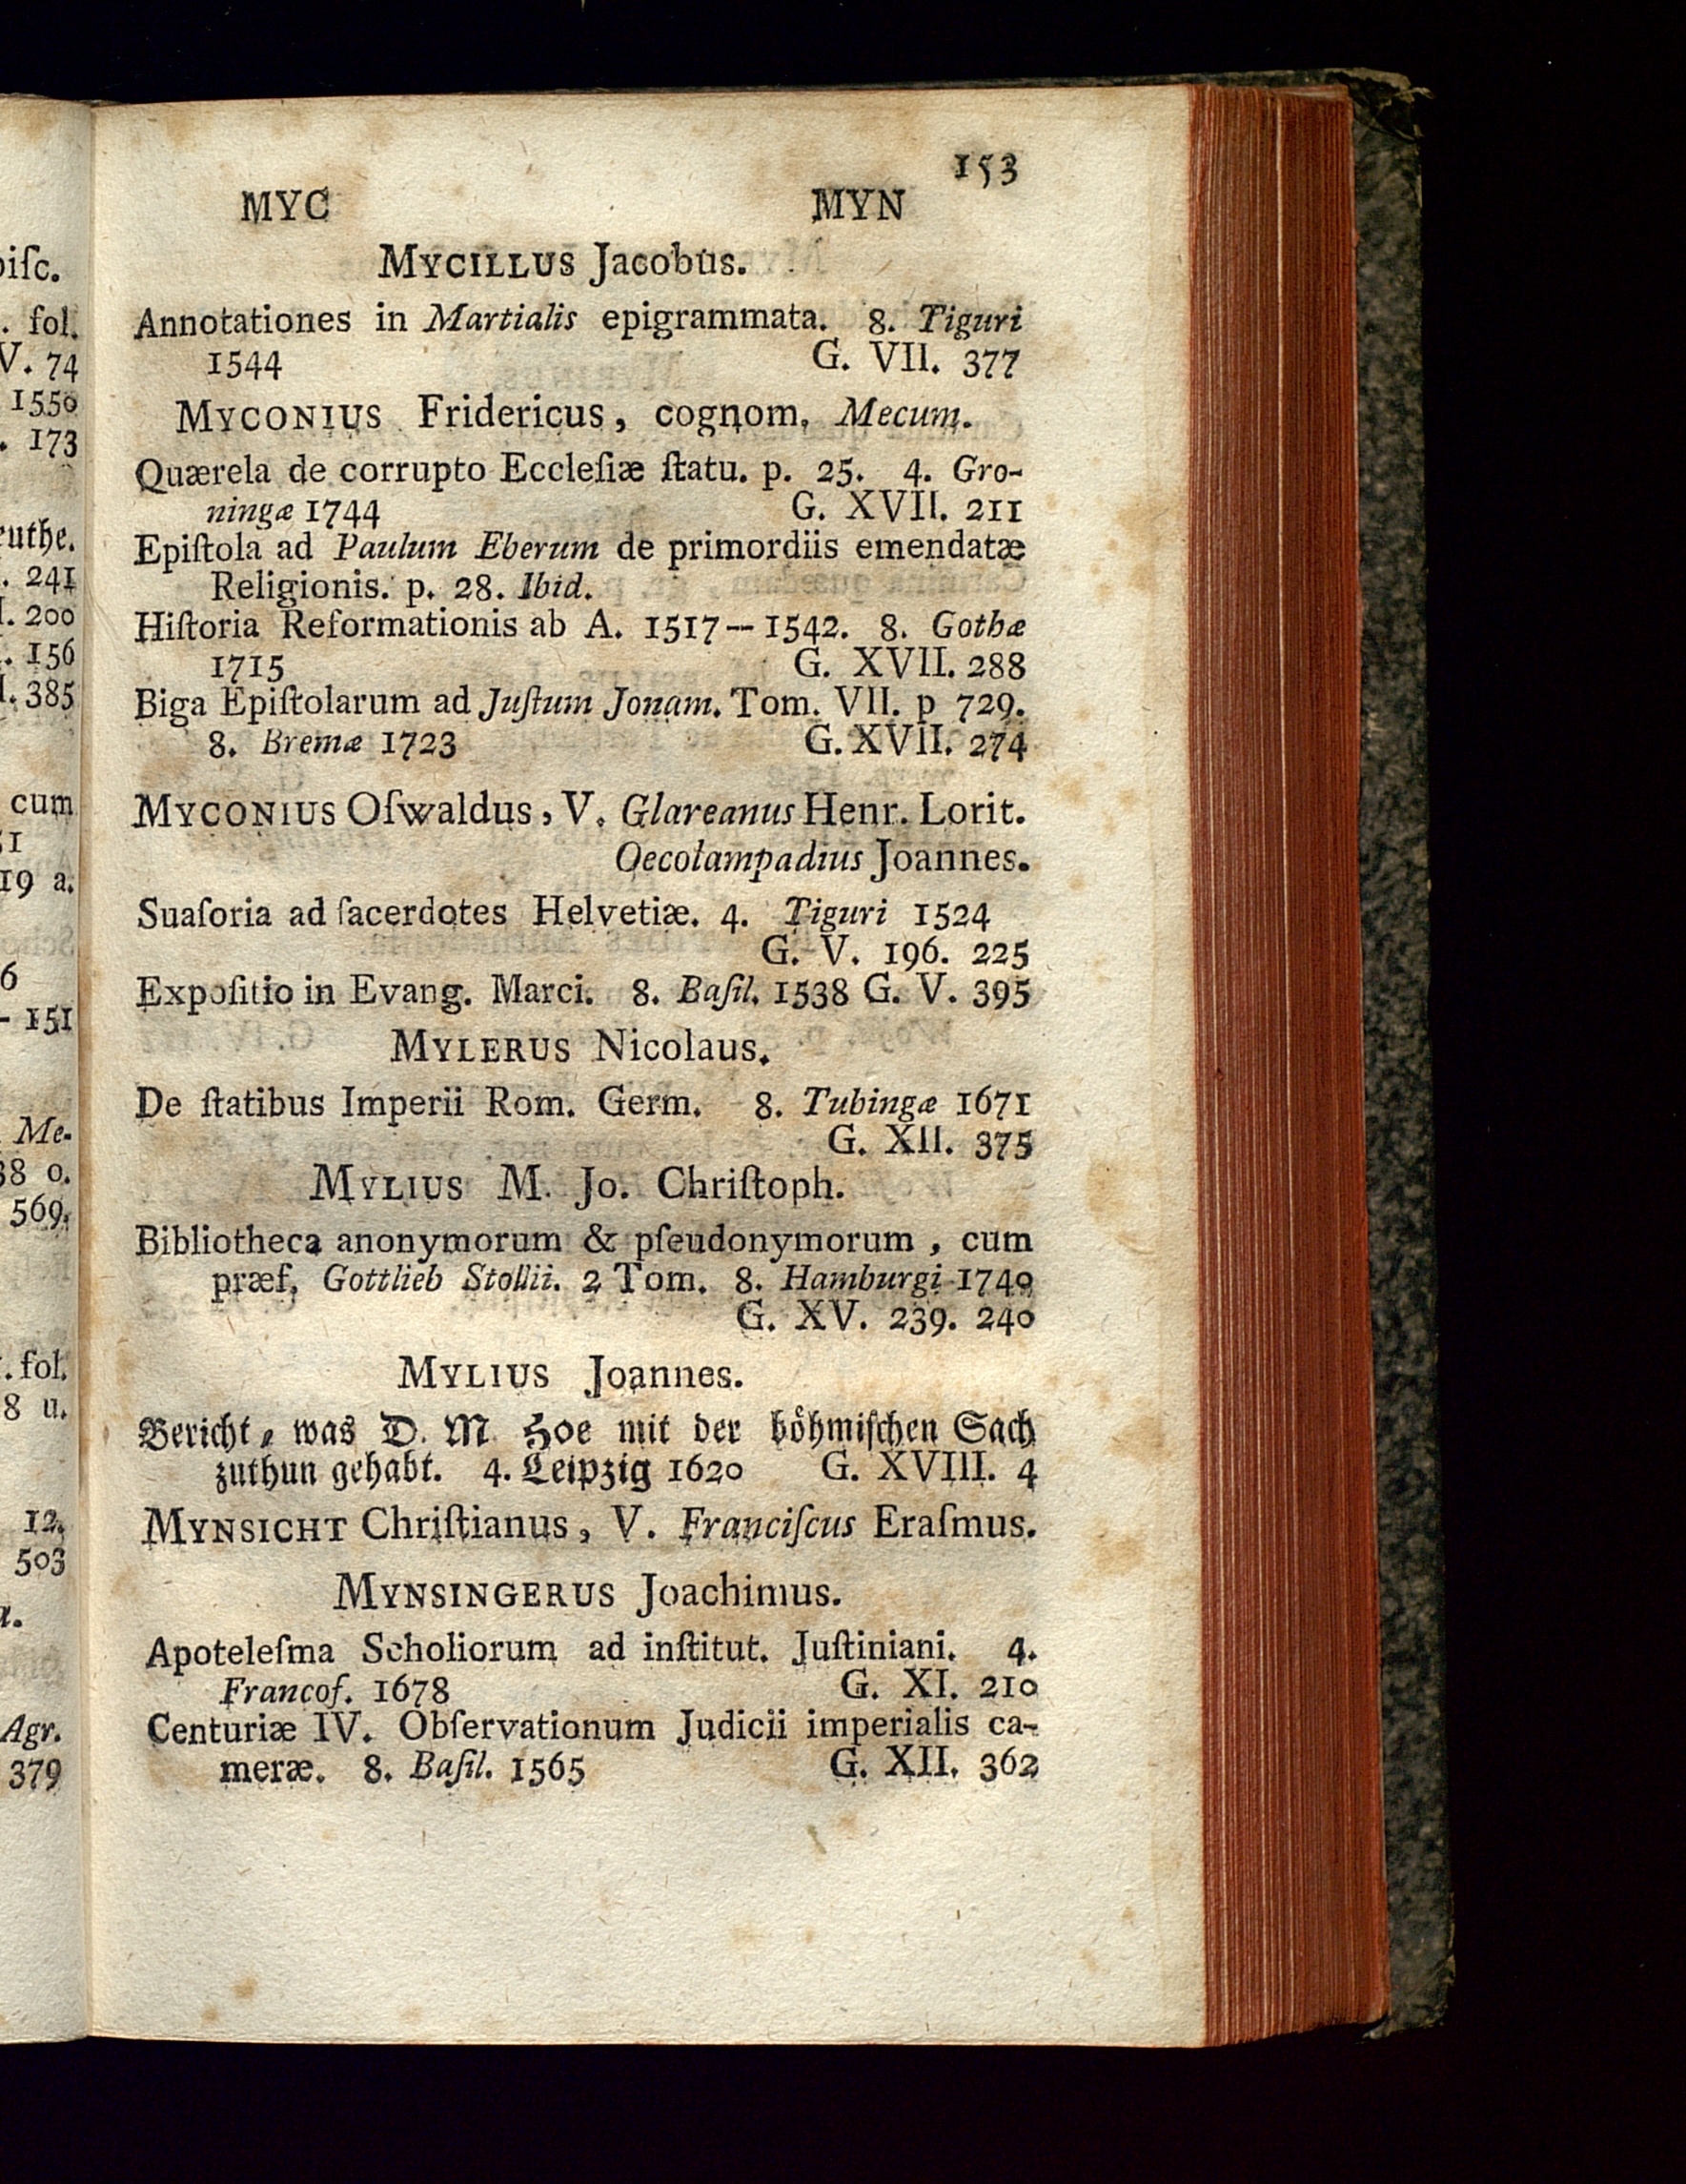 153
MYC MYN
MYCILLUS Jacobus.
Annotationes in Martialis epigrammata. 8. Tiguri
1544 G. VII. 377
MYCONIUS Fridericus, cognom. Mecum.
Quærela de corrupto Eccleſiæ ſtatu. p. 25. 4. Gro-
ningæ 1744 G. XVII. 211
Epiſtola ad Paulum Eberum de primordiis emendatæ
Religionis. p. 28. Ibid.
Hiſtoria Reformationis ab A. 1517—1542. 8. Gothæ
1715 G. XVII. 288
Biga Epiſtolarum ad Juſtum Jonam. Tom. VII. p 729.
8. Bremæ 1723 G. XVII. 274
MYCONIUS Oſwaldus, V. Glareanus Henr. Lorit.
Oecolampadius Joannes.
Suaſoria ad ſacerdotes Helvetiæ. 4. Tiguri 1524
G. V. 196. 225
Expoſitio in Evang. Marci. 8. Baſil. 1538 G. V. 395
MYLERUS Nicolaus.
De ſtatibus Imperii Rom. Germ. 8. Tubingæ 1671
G. XII. 375
MYLIUS M. Jo. Chriſtoph.
Bibliotheca anonymorum & pſeudonymorum, cum
præf. Gottlieb Stollii. 2 Tom. 8. Hamburgi 1740
G. XV. 239. 240
MYLIUS Joannes.
Bericht, was D. M. Hoe mit der böhmiſchen Sach
zuthun gehabt. 4. Leipzig 1620 G. XVIII. 4
MYNSICHT Chriſtianus, V. Franciſcus Eraſmus.
MYNSINGERUS Joachimus.
Apoteleſma Scholiorum ad inſtitut. Juſtiniani. 4.
Francof. 1678 G. XI. 210
Centuriæ IV. Obſervationum Judicii imperialis ca-
meræ. 8. Baſil. 1565 G. XII. 362